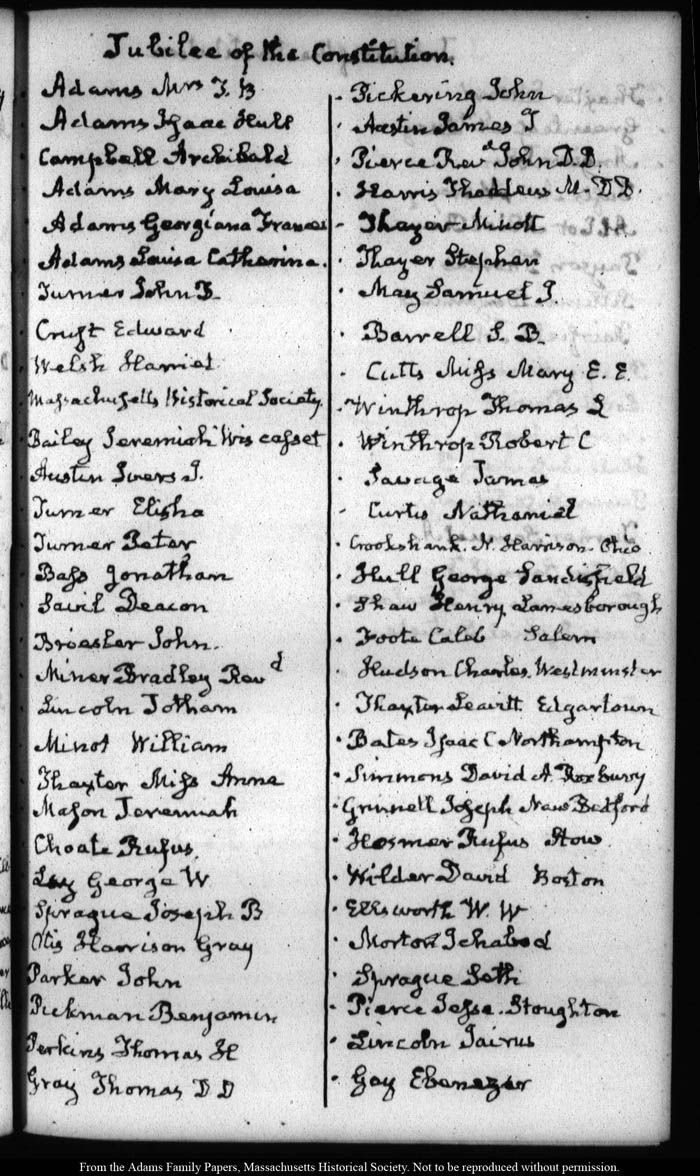 Jubilee of the Constitution.
Adams Mrs T. B
Adams Isaac Hull
Campbell Archibald
Adams Mary Louisa
Adams Georgiana Frances
Adams Louisa Catharine.
Turner John B.
Cruft Edward
Welsh Harriet
Massachusetts Historical Society.
Bailey Jeremiah Wiscasset
Austin Ivers J.
Turner Elisha
Turner Peter
Bass Jonathan
Savil Deacon
Briesler John.
Miner Bradley Revd
Lincoln Jotham
Minot William
Thaxter Miss Anna
Mason Jeremiah
Choate Rufus
Lay George W
Sprague Joseph B
Otis Harrison Gray
Parker John
Pickman Benjamin
Perkins Thomas H
Gray Thomas D D
Pickering John
Austin James T
Pierce Revd John D.D.
Harris Thaddeus M. D D.
Thayer Minott
Thayer Stephen
May Samuel J.
Barrell S. B.
Cutts Miss Mary E. E.
Winthrop Thomas L
Winthrop Robert C
Savage James
Curtis Nathaniel
Crookshank. N. Harrison. Ohio
Hull George Sandisfield
Shaw Henry Lanesborough
Foote Caleb Salem
Hudson Charles. Westminster
Thaxter Leavitt Edgartown
Bates Isaac C Northampton
Simmons David A. Roxbury
Grinnell Joseph New Bedford
Hosmer Rufus Stow
Wilder David Boston
Ellsworth W. W
Morton Ichabod
Sprague Seth
Pierce Jesse. Stoughton
Lincoln Jairus
Gay Ebenezer
From the Adams Family Papers, Massachusetts Historical Society. Not to be reproduced without permission.